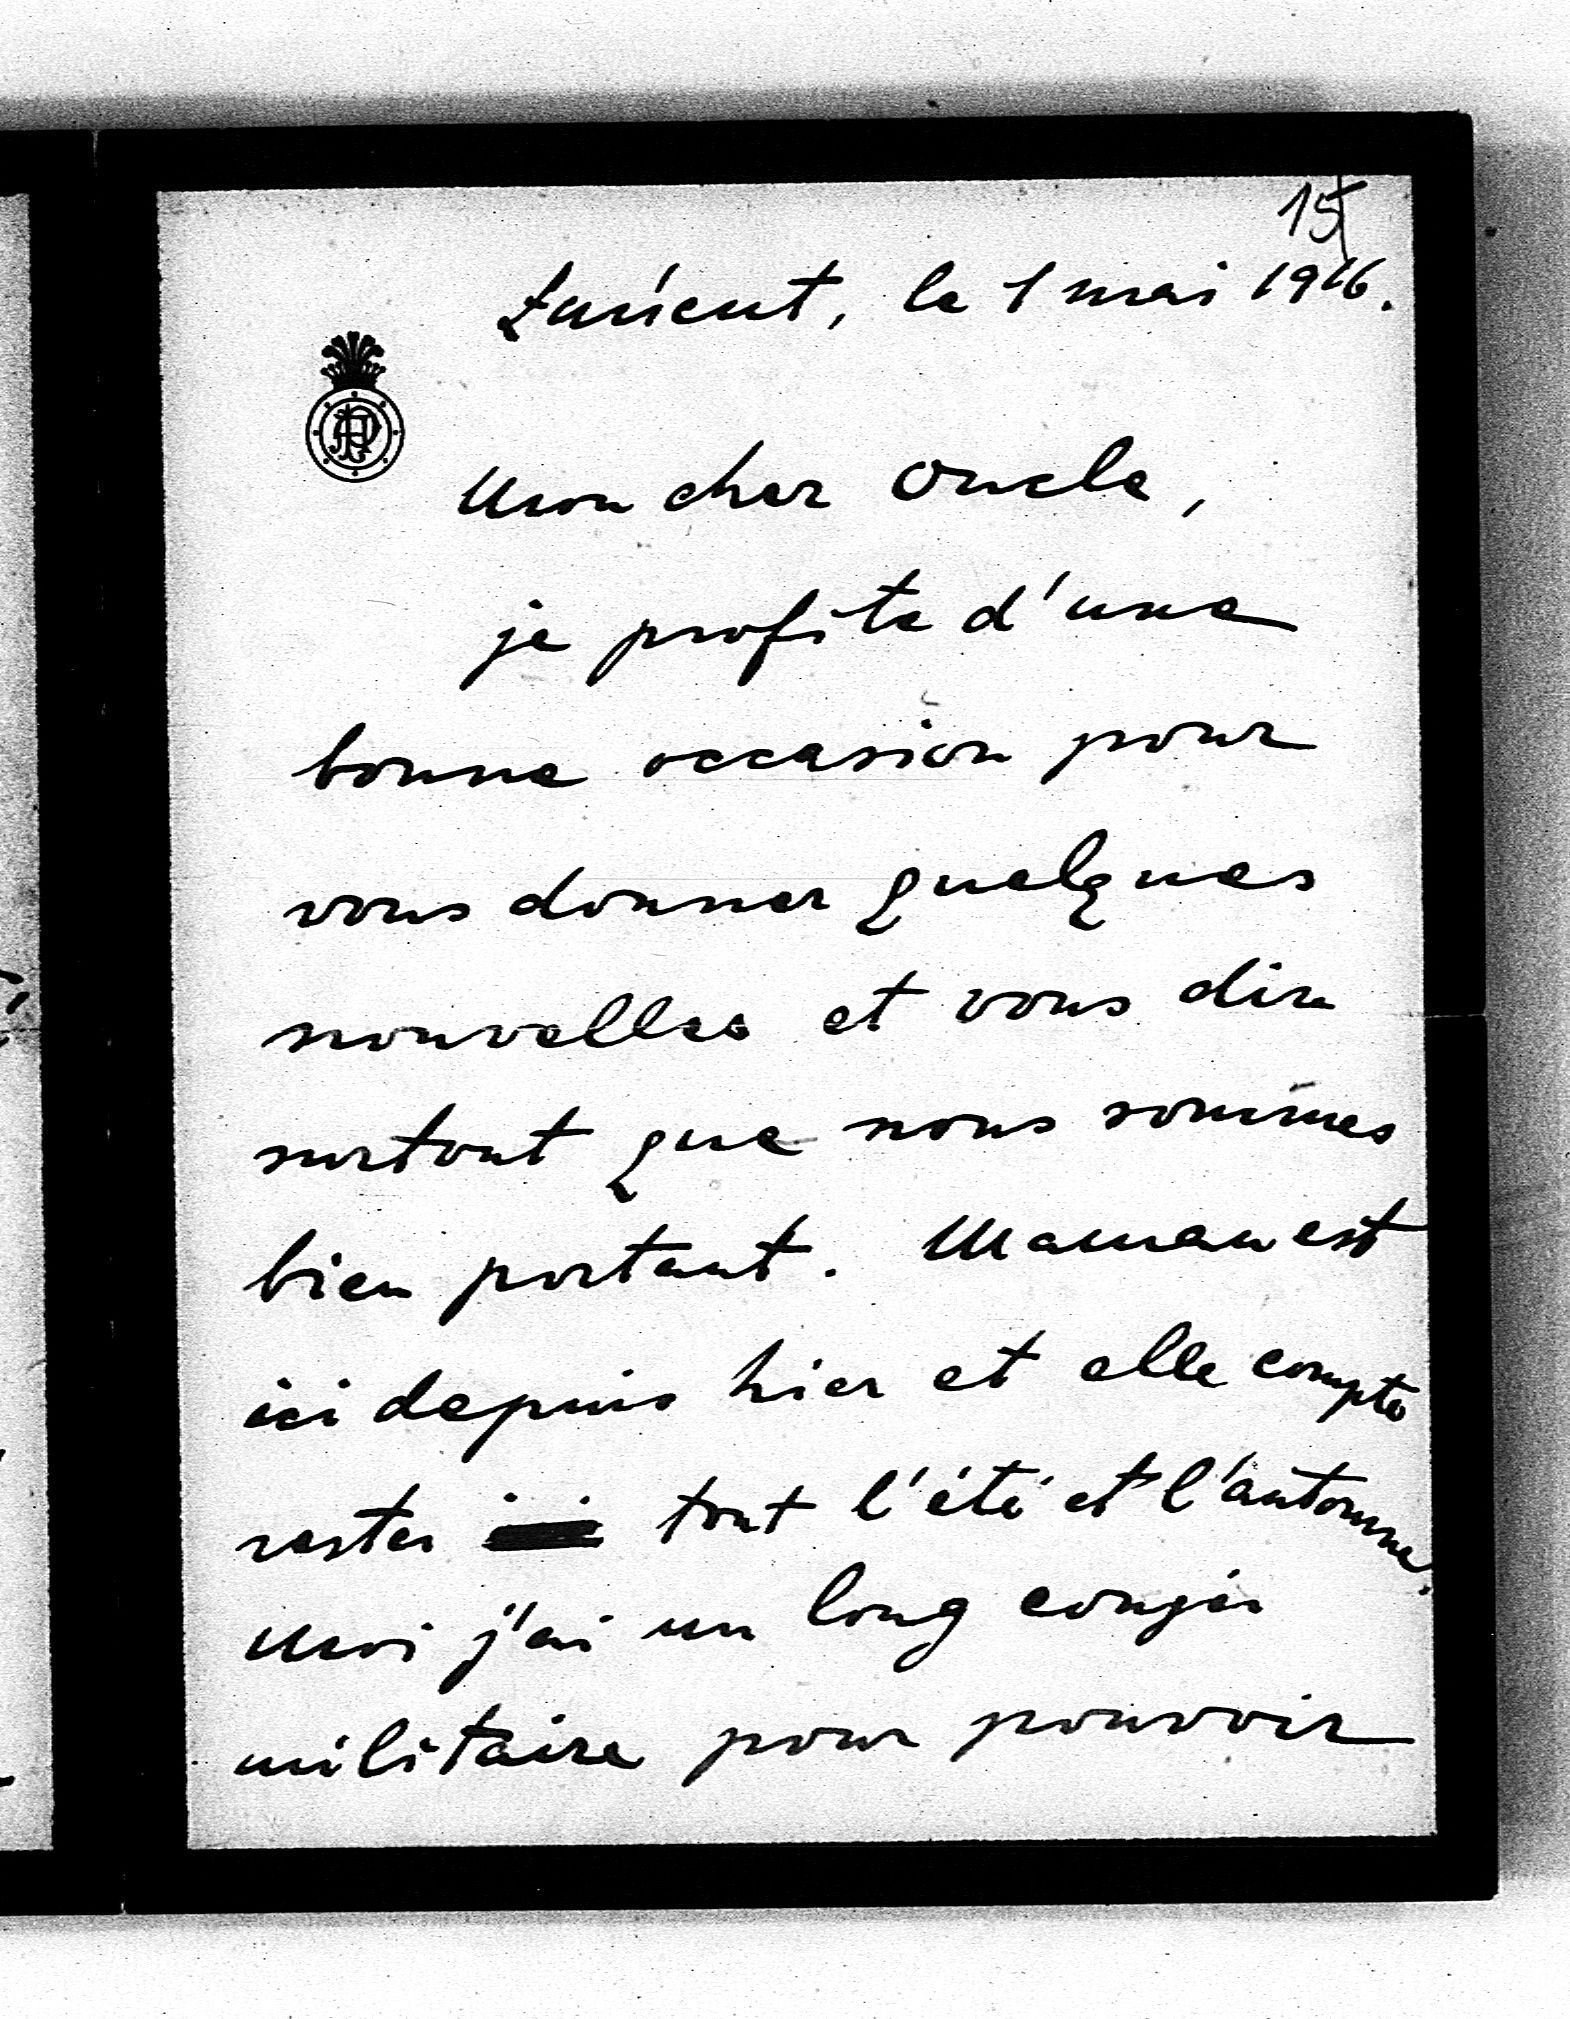 15
Łańcut, le 1 mai 1916.
Mon cher Oncle,
je profite d'une
bonne occasion pour
vous donner quelques
nouvelles et vous dire
surtout que nous sommes
bien portant. Maman est
ici depuis hier et elle compte
rester ici tout l'été et l'automne.
Moi j'ai un long congés
militaire pour pouvoir